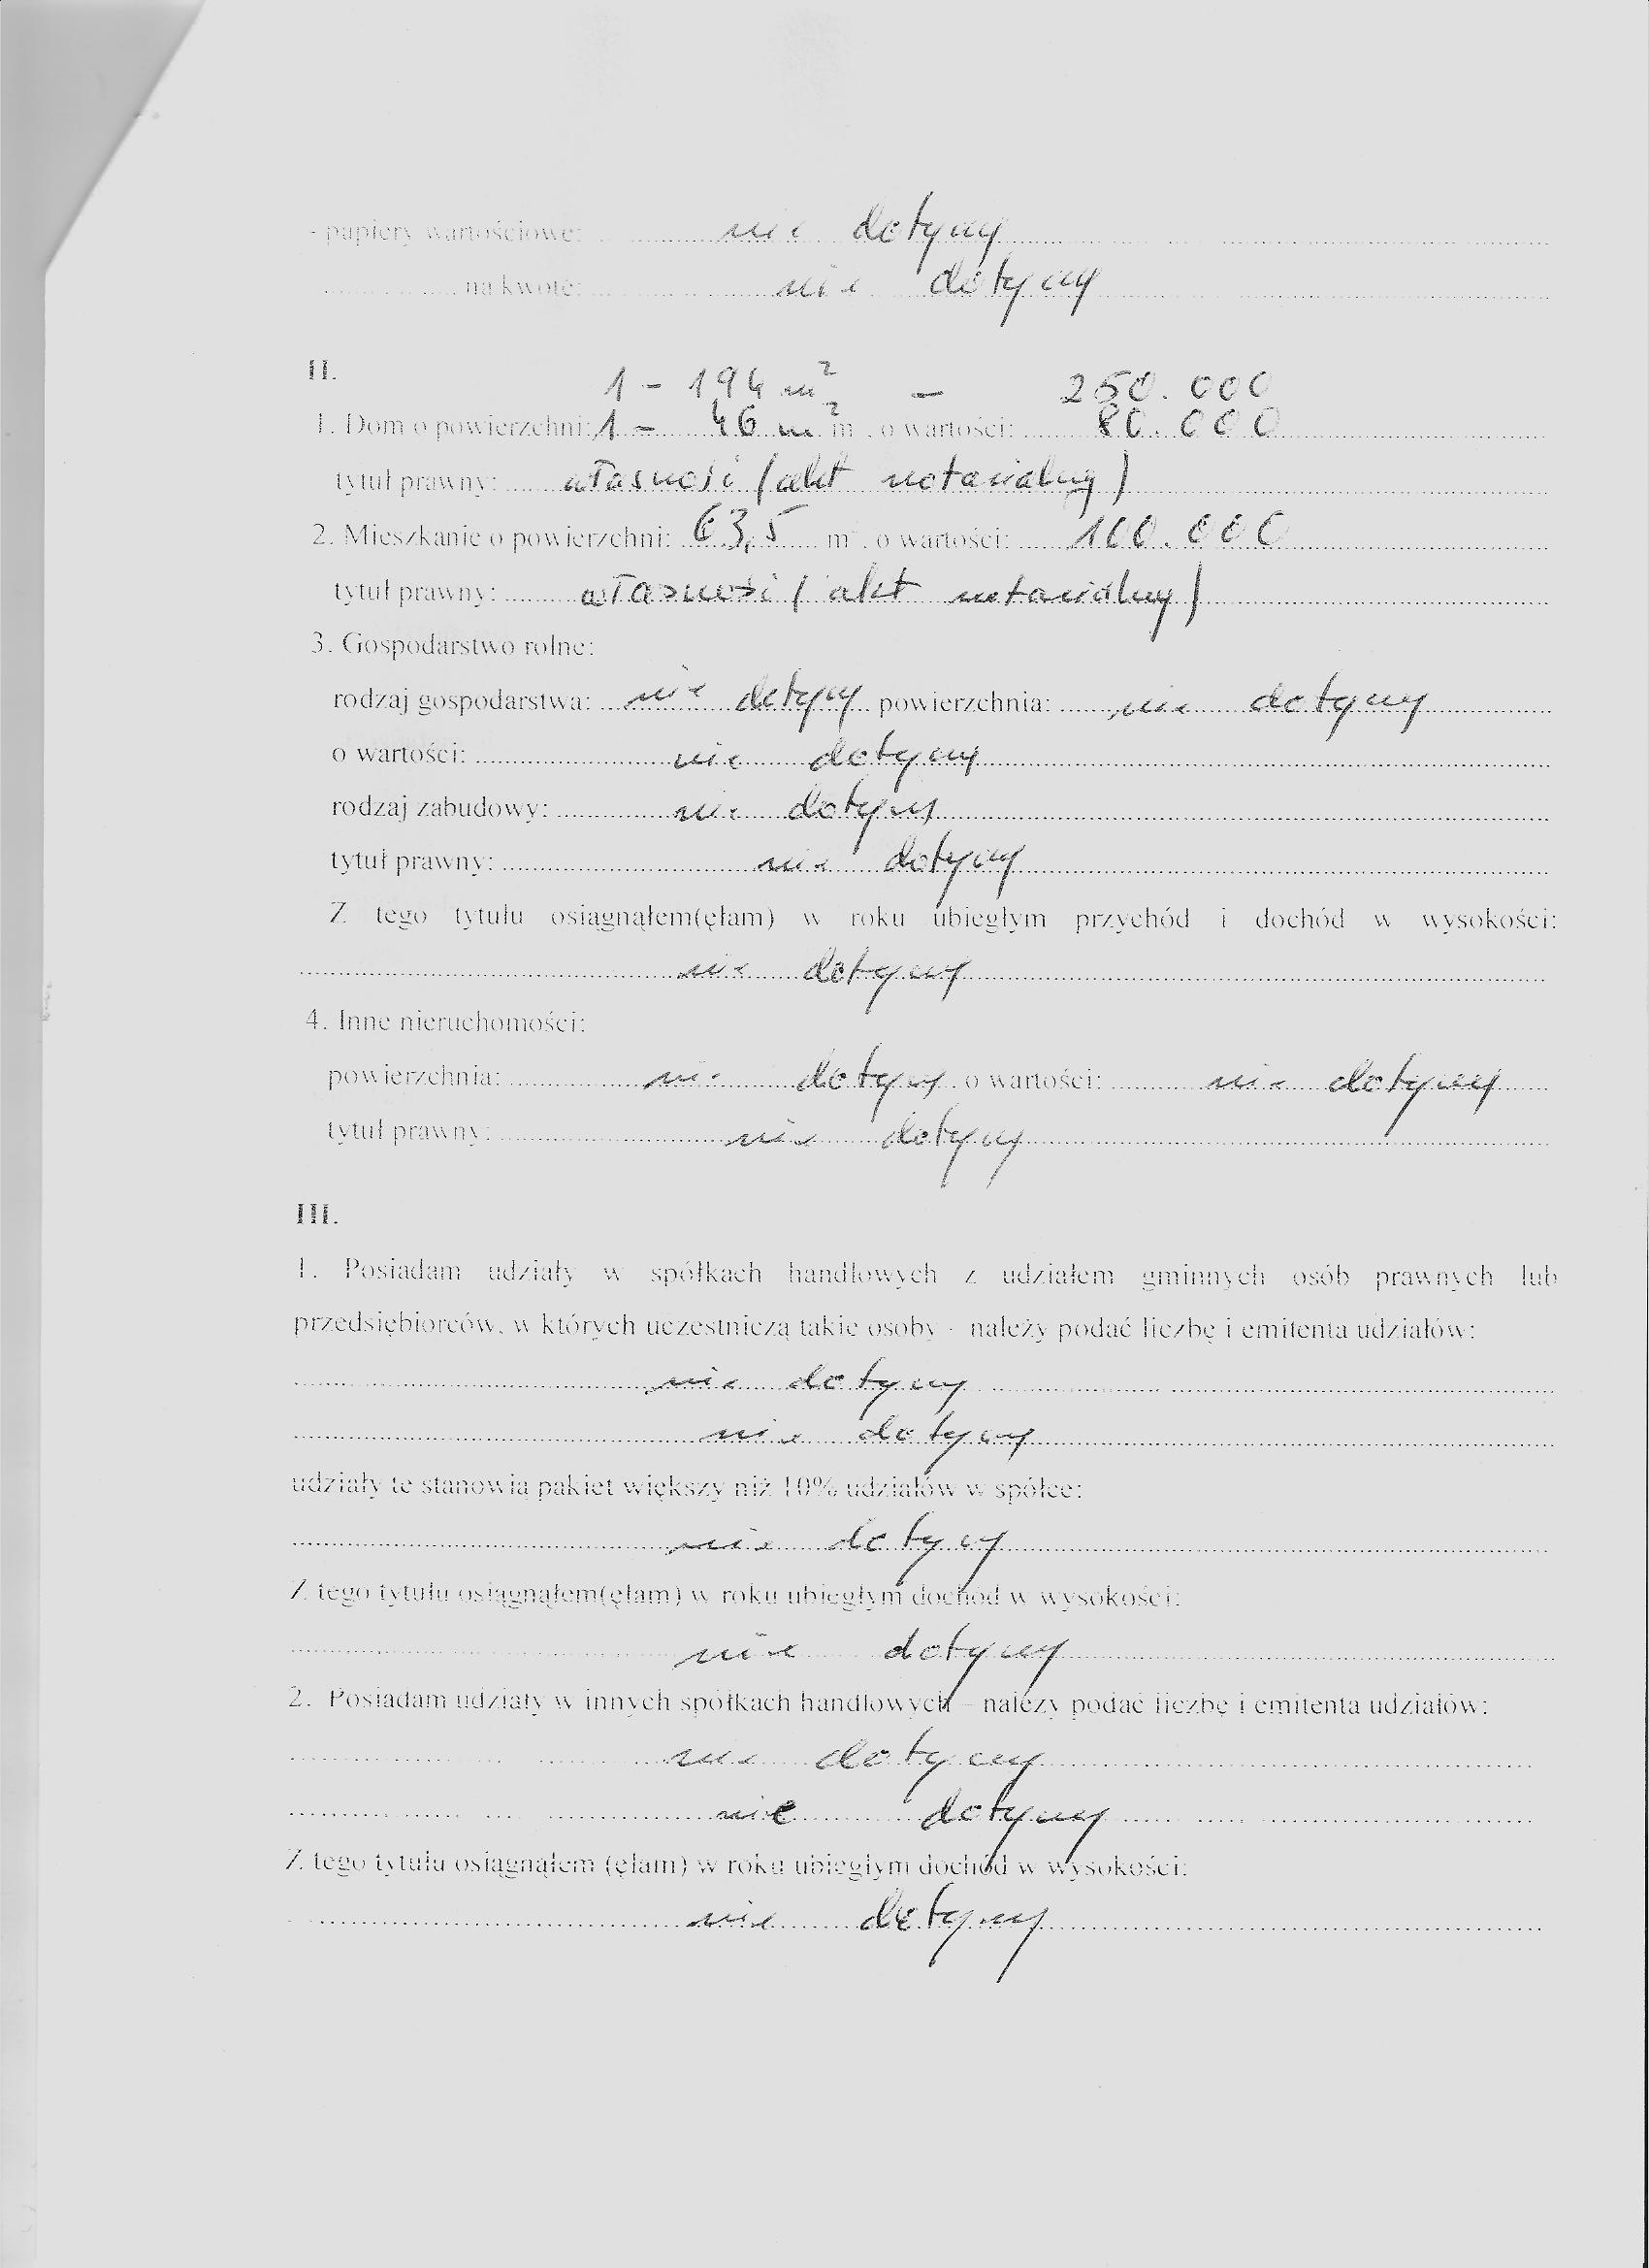 - papiery wartościowe: ... nie dotyczy
... na kwotę: ... nie dotyczy
II.
1 - 194 m² - 250.000
1. Dom o powierzchni: 1 - 46 m² m², o wartości: 80.000
tytuł prawny: własność (akt notarialny)
2. Mieszkanie o powierzchni: 63,5 m², o wartości: 100.000
tytuł prawny: własność (akt notarialny)
3. Gospodarstwo rolne:
rodzaj gospodarstwa: nie dotyczy powierzchnia: nie dotyczy
o wartości: nie dotyczy
rodzaj zabudowy: nie dotyczy
tytuł prawny: nie dotyczy
Z tego tytułu osiągnąłem(ęłam) w roku ubiegłym przychód i dochód w wysokości:
nie dotyczy
4. Inne nieruchomości:
powierzchnia: nie dotyczy o wartości: nie dotyczy
tytuł prawny: nie dotyczy
III.
1. Posiadam udziały w spółkach handlowych z udziałem gminnych osób prawnych lub
przedsiębiorców, w których uczestniczą takie osoby - należy podać liczbę i emitenta udziałów:
nie dotyczy
nie dotyczy
udziały te stanowią pakiet większy niż 10% udziałów w spółce:
nie dotyczy
Z tego tytułu osiągnąłem(ęłam) w roku ubiegłym dochód w wysokości:
nie dotyczy
2. Posiadam udziały w innych spółkach handlowych – należy podać liczbę i emitenta udziałów:
nie dotyczy
nie dotyczy
Z tego tytułu osiągnąłem (ęłam) w roku ubiegłym dochód w wysokości:
nie dotyczy